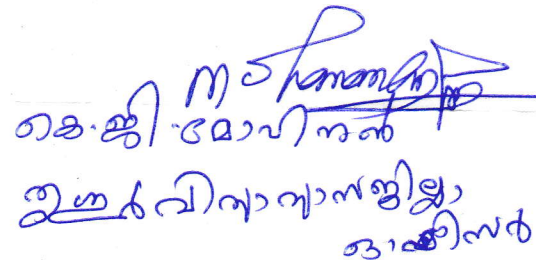 കെ.ജി.മോഹനൻ
തൃശൂർ വിദ്യാഭ്യാസജില്ലാ
ഓഫീസർ